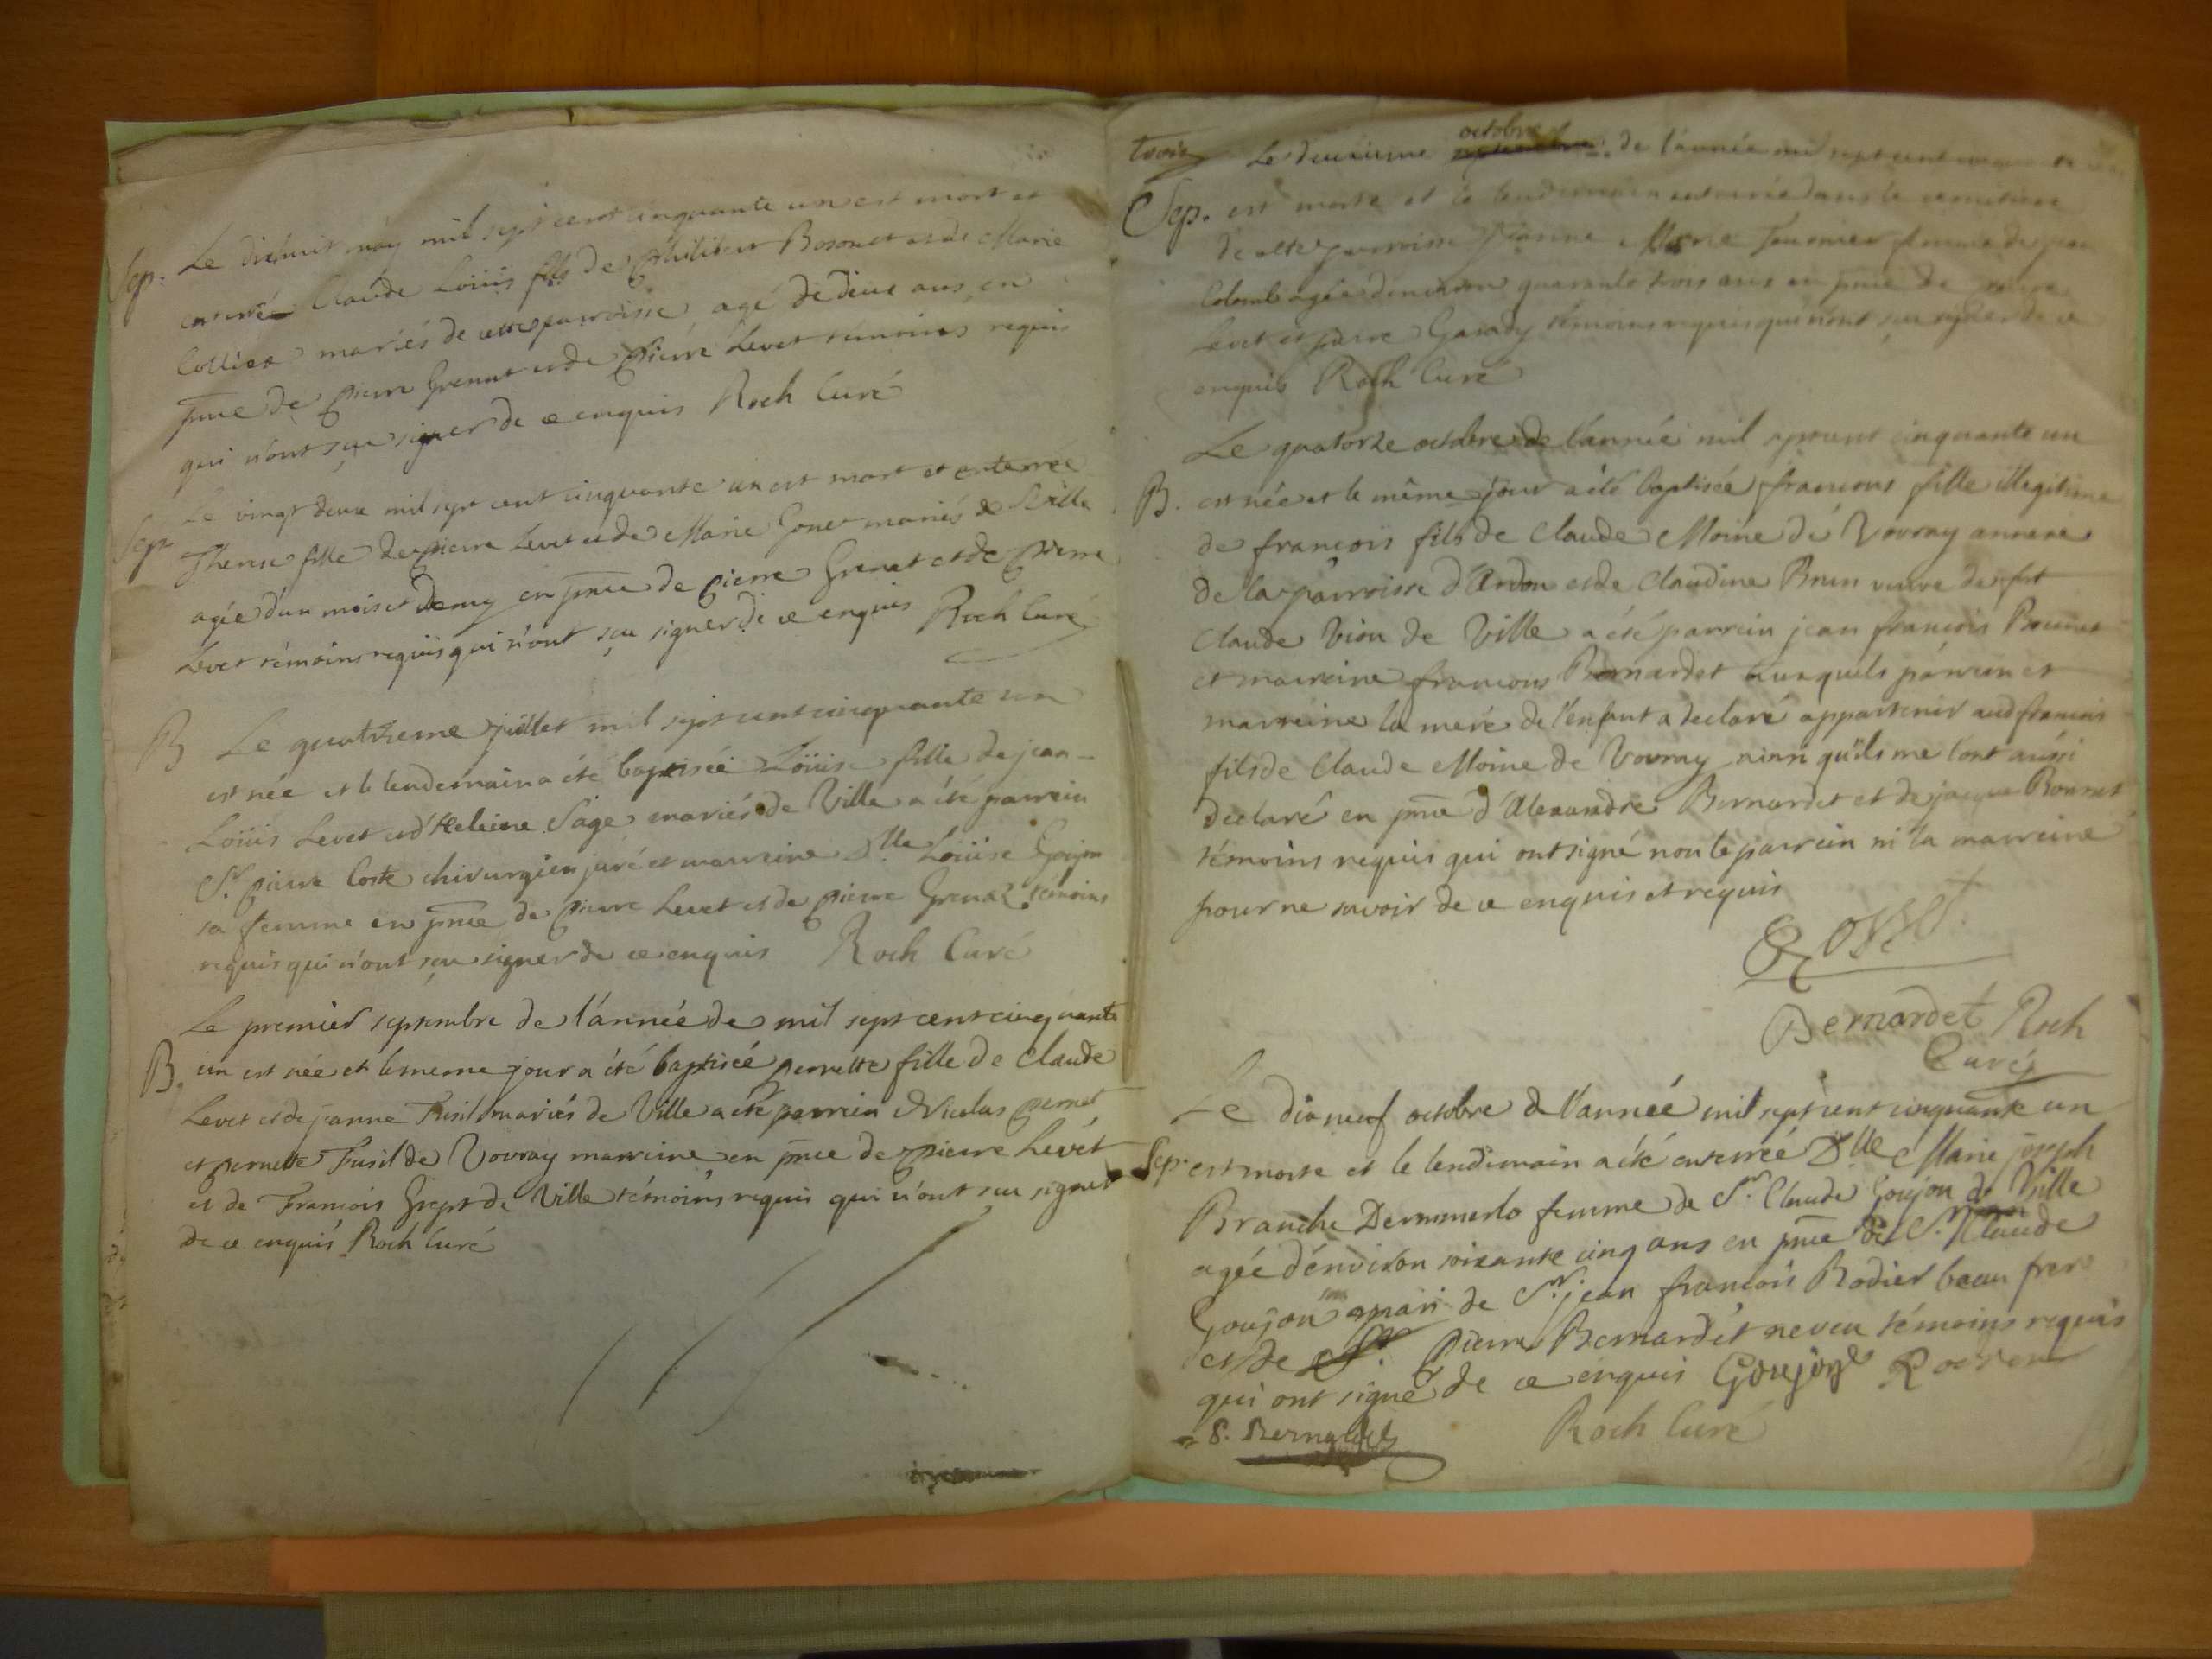 Sep. Le dixhuit may mil sept cent cinquante un est mort et
enterré Claude Loüis fils de Philibert Bosonet et de Marie
Collier mariés de cette parroisse agé de deux ans en
pnce de Pierre Grenat et de Pierre Levet témoins requis
qui n'ont sçu signer de ce enquis Roch Curé
Le vingt deux mil sept cent cinquante un est mort et enterrée
Sep Therese fille de Pierre Levet et de Marie Gonet mariés de Ville
agée d'un mois et demy en pnce de Pierre Grenat et de Pierre
Levet témoins requis qui n'ont sçu signer de ce enquis Roch Curé
B Le quatrieme juillet mil sept cent cinquante un
est née et le lendemain a été baptisée Loüise fille de jean
Loüis Levet et d'Heleine Sage mariés de Ville a été parrein
Sr. Pierre Coste chirurgien juré et marreine Dlle Loüise Goujon
sa femme en pnce de Pierre Levet et de Pierre Grenat témoins
requis qui n'ont sçu signer de ce enquis Roch Curé
Le premier septembre de l'année de mil sept cent cinquante
B. un est née et le meme jour a été baptisée pernette fille de Claude
Levet et de jeanne Fusil mariés de Ville a été parrein Nicolas pernet
et pernette Fusil de Vovray marreine en pnce de Pierre Levét
et de Francois de Ville témoins requis qui n'ont sçu signer
de ce enquis Roch Curé
octobre
trois Le deuxieme de l'année mil sept cent
Sep. est morte et le lendemain enterrée dans le cemetiere
de cette parroisse jeanne Marie Fournier femme de
Colomb agée d'environ quarante trois ans en pnce de pierre
Levet et pierre témoins requis qui n'ont sçu signer de ce
enquis Roch Curé
Le quatorze octobre de l'année mil sept cent cinquante un
B. est née et le même jour a été baptisée francoise fille illegitime
de francois fils de Claude Moine de Vovray annexe
de la parroisse d'Ardon et de Claudine Brun veuve de fut
Claude Vion de Ville a été parrein jean francois
et marreine francoise Bernardet auxquels parrein et
marreine la mere de l'enfant a declaré appartenir aud francois
fils de Claude Moine de Vovray ainsi qu'ils me l'ont aussi
declaré en pnce d'Alexandre Bernardet et de jacque
témoins requis qui ont signé non le parrein ni la marreine
pour ne savoir de ce enquis et requis
Bernardet Roch
Curé
Le dixneuf octobre de l'année mil sept cent cinquante un
Sep. est morte et le lendemain a été enterrée Dlle Marie joseph
femme de Sr. Claude Goujon de Ville
agée d'environ soixante cinq ans en pnce de Sr. Claude
Goujon son mari de Sr. jean francois Rodier beau frere
et de Sr. pierre Bernardet neveu témoins requis
qui ont signé de ce enquis Goujon Rodier
P. Bernardet Roch Curé